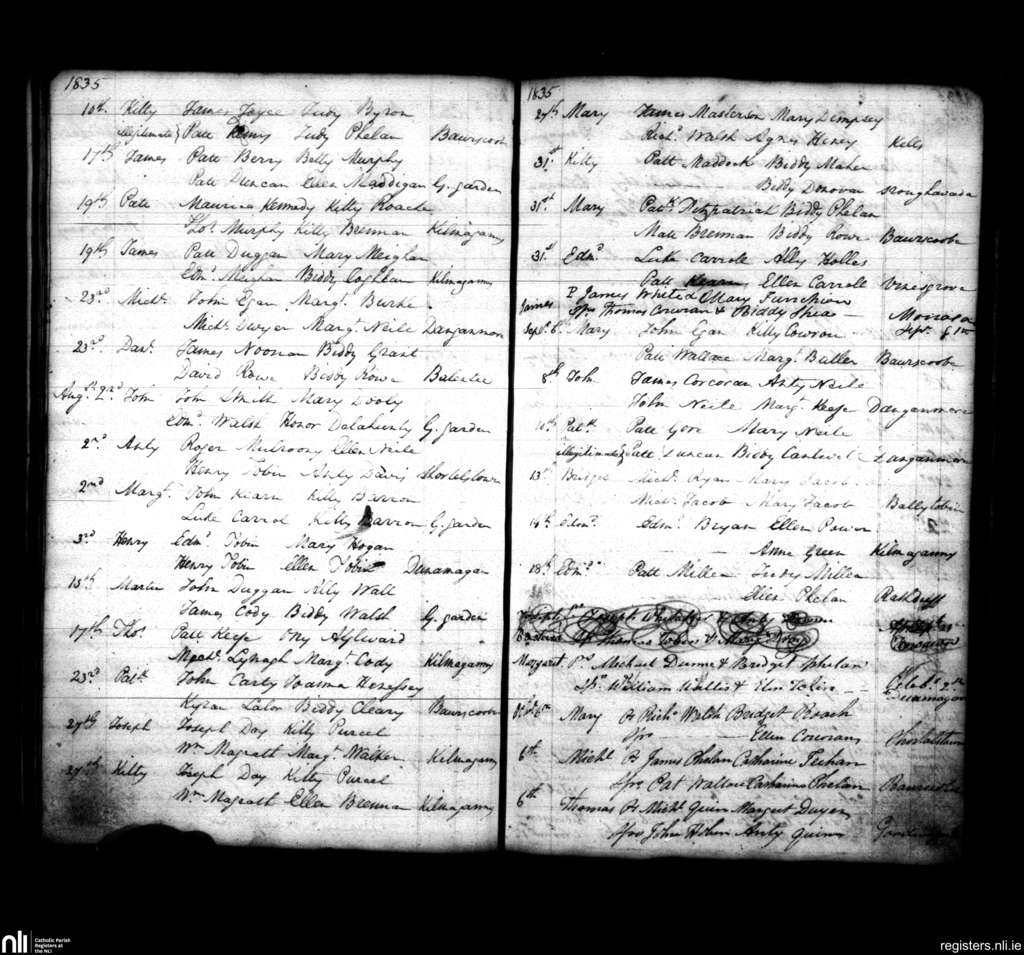 1835
10th Kitty James Joyce Judy Byron
illegitimate} Patt Judy Phelan Bawrscoob
17th James Patt Berry Betty Murphy
Patt Duncan Ellen Maddigan G. garden
19th Patt Maurice Kennedy Kitty Roache
Thos Murphy Kitty Brennan Kilmaganny
19th James Patt Duggan Mary Meighan
Edmd Meighan Biddy Coghlan Kilmaganny
23rd Michl John Egan Margt Burke
Michl Dwyer Margt Neile Dangannon
23rd Danl James Noonan Biddy Grant
David Rowe Biddy Rowe
Augst 2nd John John Smith Mary Dooly
Edmd Walsh Honor Delahunty G. garden
2nd Anty Roger Mulroony Ellen Neile
Henry Tobin Anty Davis
2nd Margt John Kearn Kitty Barron
Luke Carrol Kitty Barron G. garden
3rd Henry Edmd Tobin Mary Hogan
Henry Tobin Ellen Tobin Dunamagan
15th Martin John Duggan Ally Wall
James Cody Biddy Walsh G. garden
17th Thos Patt Keefe Ony Aylward
Michl Lynagh Margt Cody Kilmaganny
23rd Patk John Carty Joanna Henessey
Kyran Lalor Biddy Cleary Bawrscoob
27th Joseph Joseph Day Kitty Purcel
Wm Magrath Margt Walker Kilmaganny
27th Kitty Joseph Day Kitty Purcel
Wm Magrath Ellen Brennan Kilmaganny
1835
27th Mary James Masterson Mary Dempsey
Richd Walsh Agnes Heney Kells
31st Kitty Patt Maddock Biddy Maher
Biddy Donovan
31st Mary Patk Fitzpatrick Biddy Phelan
Matt Brennan Biddy Rowe Bawrscoobe
31st Edmd Luke Carroll Ally Holles
Patt Kearn Ellen Carroll Vinesgrove
James P James White & Mary
Sprs Thomas Corcoran & Biddy Shea
Sept 6 Mary John Egan Kitty Cowran
Patt Wallace Margt Butler Bawrscoobe
8th John James Corcoran Anty Neile
John Neile Margt Keefe Danganmore
10th Patk Patt Gore Mary Neile
illegitimate} Patt Duncan Biddy Cantwell Danganmore
13th Bridget Michl Ryan Mary Jacob
Michl Jacob Mary Jacob Ballytobin
14th Edmd Edmd Bryan Ellen Power
Anne Green Kilmaganny
18th Edmd Patt Miller Judy Miller
Ellen Phelan Rathduff
Joseph Whitaker &
Thomas Tobin & Mary
Margaret Ps Michael Dunne & Bridget Phelan
Sprs William Wallis & Ellen Tobin
6th Mary Ps Richd Walsh Bridget Roach
Sprs Ellen Corcoran
6th Michl Ps James Phelan Catharine Feehan
Sprs Pat Catharine Phelan
6th Thomas Ps Michl Quin Margret Dwyer
Sprs John Anty Quinn
nli
Catholic Parish
Registers at
the NLI
registers.nli.ie